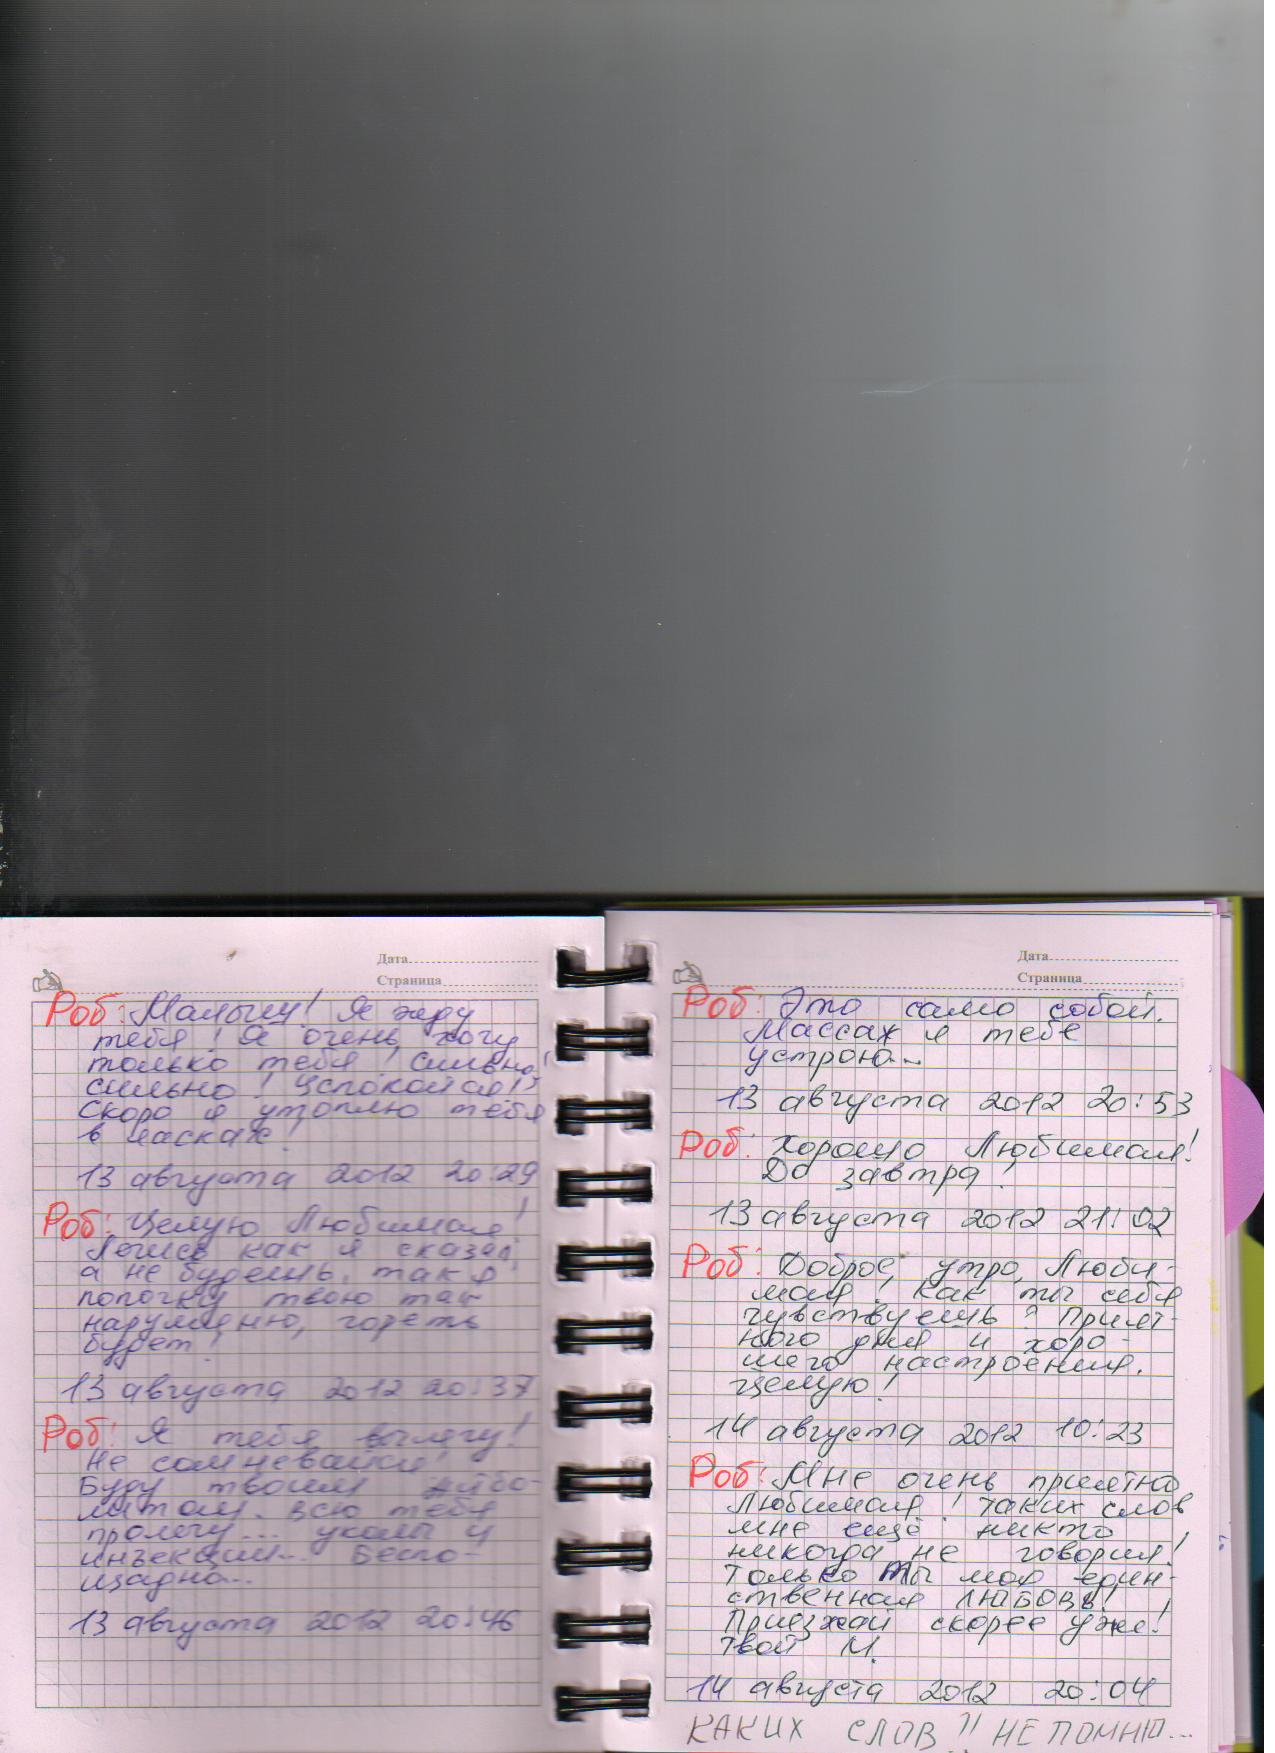 Дата
Страница
Роб: Малыш! Я жду
тебя! Я очень хочу
только тебя! Сильно!
сильно! Успокойся!
Скоро я утоплю тебя
в ласках!
13 августа 2012 20:29
Роб: Целую Любимая!
Лечись как я сказал,
а не будешь, так я
попочку твою так
нарумяню, гореть
будет!
13 августа 2012 20:37
Роб: Я тебя вылечу!
Не сомневайся!
Буду твоим Айбо-
литом. Всю тебя
пролечу... уколы и
инъекции... Беспо-
щадно...
13 августа 2012 20:46
Дата
Страница
Роб: Это само собой.
Массаж я тебе
устрою...
13 августа 2012 20:53
Роб: Хорошо Любимая!
До завтра!
13 августа 2012 21:02
Роб: Доброе утро, Люби-
мая! Как ты себя
чувствуешь? Прият-
ного дня и хоро-
шего настроения.
Целую!
14 августа 2012 10:23
Роб: Мне очень приятно
Любимая! Таких слов
мне ещё никто
никогда не говорил!
Только Ты моя един-
ственная ЛЮБОВЬ!
Приезжай скорее уже!
Твой М.
14 августа 2012 20:04
КАКИХ СЛОВ?! НЕ ПОМНЮ...